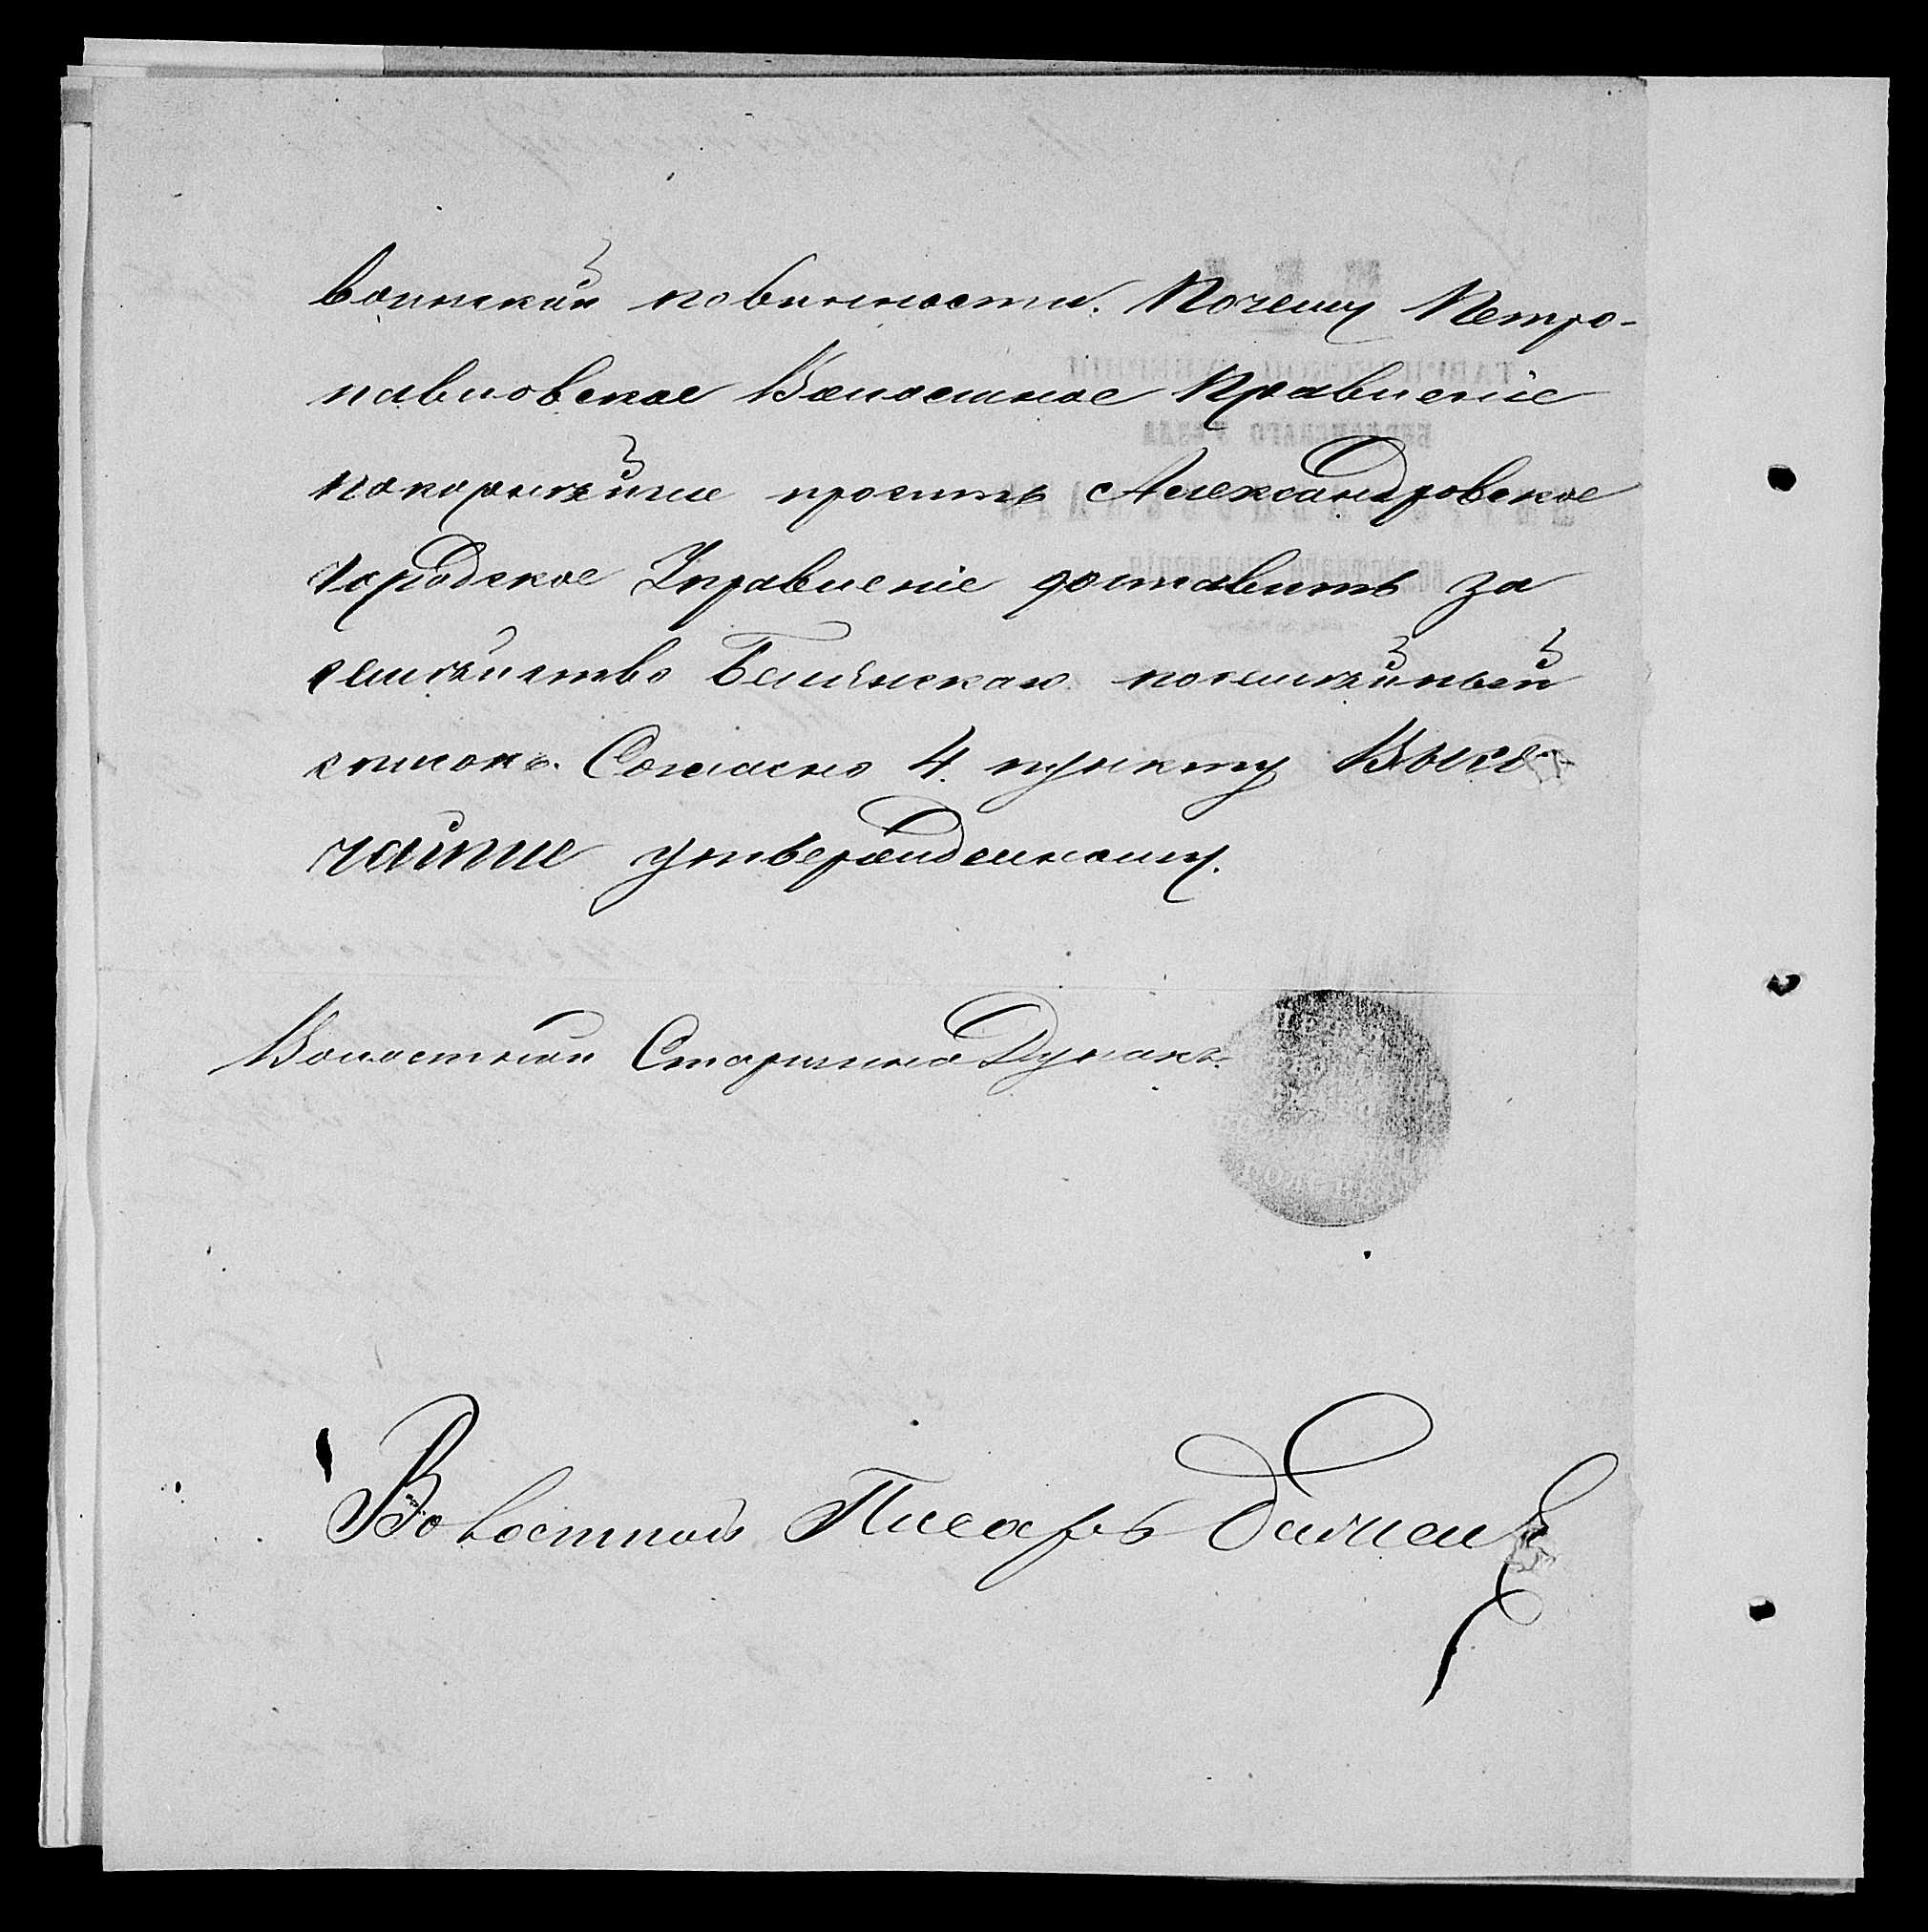 воинской повинности. Почему Петро-
павловское Волостное Правленіе
покорнѣйше проситъ Александровское
городское Управленіе доставить за
семѣйство посемѣйный
списокъ. Согласно 4. пункту Высо
чайше утвержденному.
Волостной Старшина
Волостной Писарь